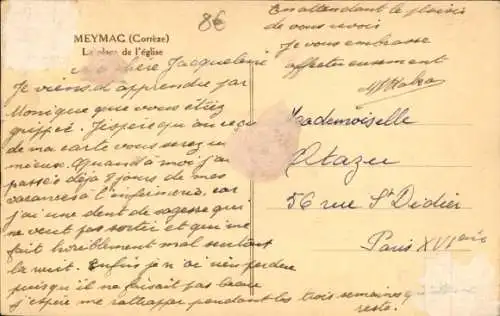 8€
MEYMAC (Corrèze)
La place de l'église
Ma chère Jacqueline
Je viens d'apprendre par
Monique que vous étiez
grippée. J'espère qu'au reçu
de ma carte vous serez en
mieux. Quand à moi j'ai
passés déjà 8 jours de mes
vacances à l'infirmerie, car
j'ai une dent de sagesse qui
ne veut pas sortir et qui me
fait horriblement mal surtout
la nuit. Enfin je n'ai rien perdu
puisqu'il ne faisait pas beau
j'espère me rattraper pendant les trois semaines qui
reste.
En attendant le plaisir
de vous revoir
Je vous embrasse
affectueusement
Mademoiselle
Otazu
56 rue St Didier
Paris XVIème